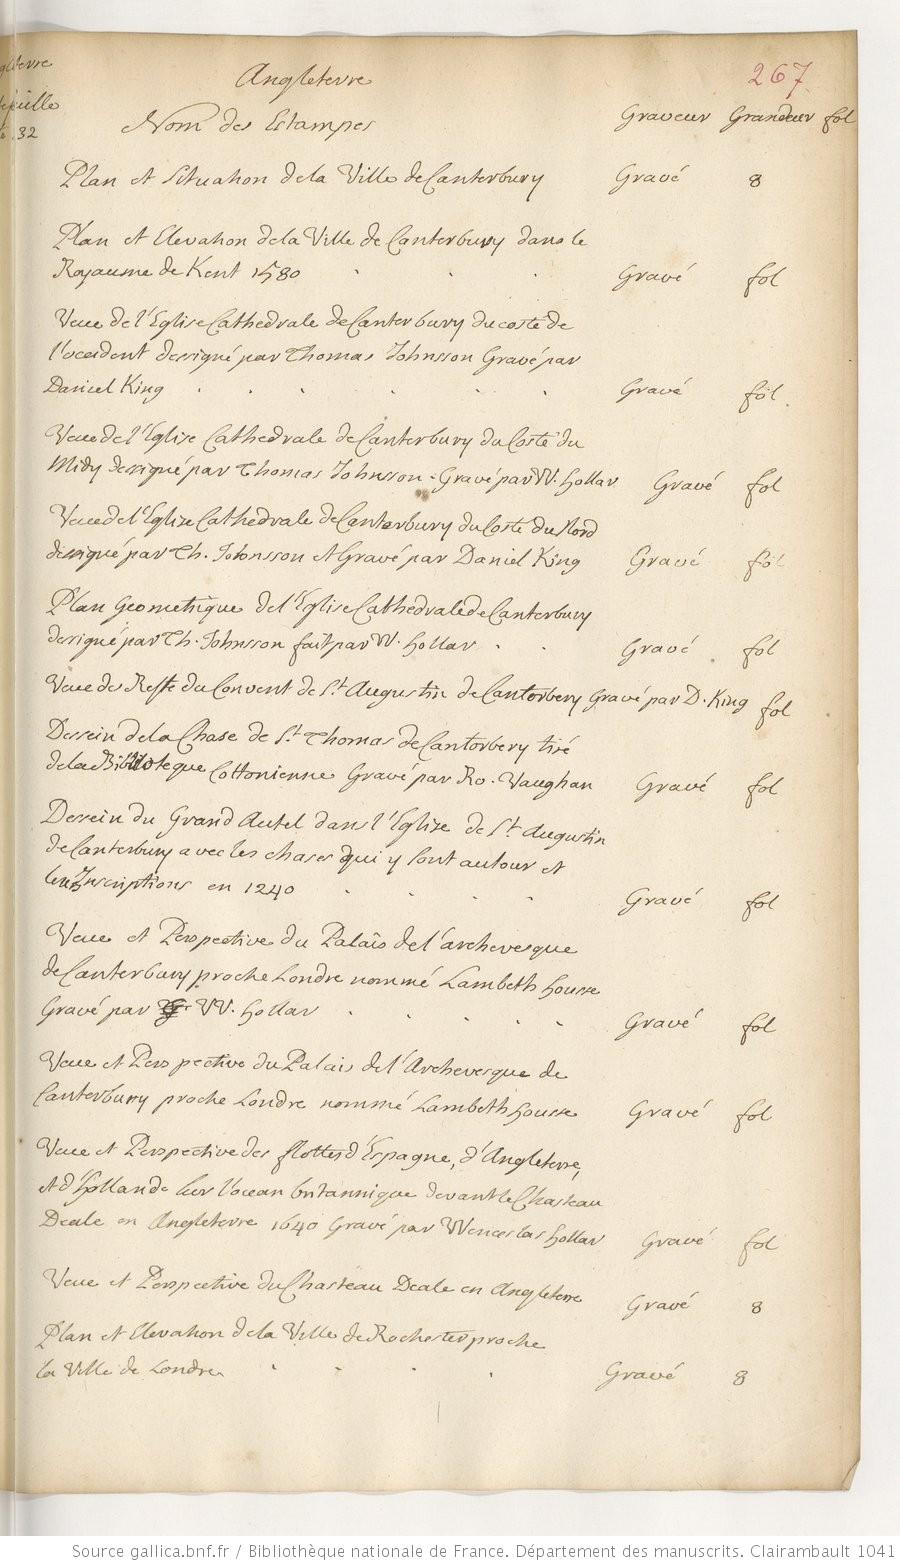 Angleterre
267
Nom des Estampes Graveur Grandeur fol
32
Plan et Situation de la Ville de Canterbury Gravé 8
Plan et Elevation de la Ville de Canterbury dans le
Royaume de Kent 1580 Gravé fol
Veue de l'Eglise Cathedrale de Canterbury du costé de
l'occident designé par Thomas Johnsson Gravé par
Daniel King Gravé fol
Veue de l'Eglise Cathedrale de Canterbury du Costé du
Midy designé par Thomas Johnsson Gravé par W. Hollar Gravé fol
Veue de l'Eglise Cathedrale de Canterbury du Costé du Nord
designé par Th. Johnsson et Gravé par Daniel King Gravé fol
Plan Geometrique de l'Eglise Cathedrale de Canterbury
designé par Th. Johnsson fait par W. Hollar Gravé fol
Veue des Reste du Convent de St. Augustin de Cantorbery Gravé par D. King fol
Dessein de la Chase de St. Thomas de Cantorbery tiré
de la Biblioteque Cottonienne Gravé par Ro. Vaughan Gravé fol
Dessein du Grand Autel dans l'Eglize de St. Augustin
de Canterbury avec les chases qui y sont autour et
leurs Inscriptions en 1240 Gravé fol
Veue et Perspective du Palais de l'archevesque
de Canterbury proche Londre nommé Lambeth housse
Gravé par W. Hollar Gravé fol
Veue et Perspective du Palais de l'Archevesque de
Canterbury proche Londre nommé Lambeth housse Gravé fol
Veue et Perspective des flottes d'Espagne, d'Angleterre,
et d'Hollande sur l'ocean britannique devant le Chasteau
Deale en Angleterre 1640 Gravé par Wenceslas Hollar Gravé fol
Veue et Perspective du Chasteau Deale en Angleterre Gravé 8
Plan et Elevation de la Ville de Rochester proche
la Ville de Londre Gravé 8
Source gallica.bnf.fr / Bibliothèque nationale de France. Département des manuscrits. Clairambault 1041